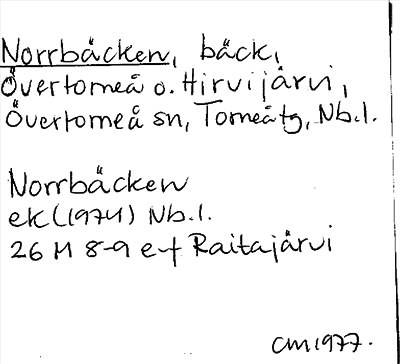 Norrbäcken, bäck,
Övertorneå o. Hirvijärvi,
Övertorneå sn, Torneå tg, Nb.l.
Norrbäcken
ek (1974) Nb.l.
26 M 8-9 e-f Raitajärvi
CM 1977.